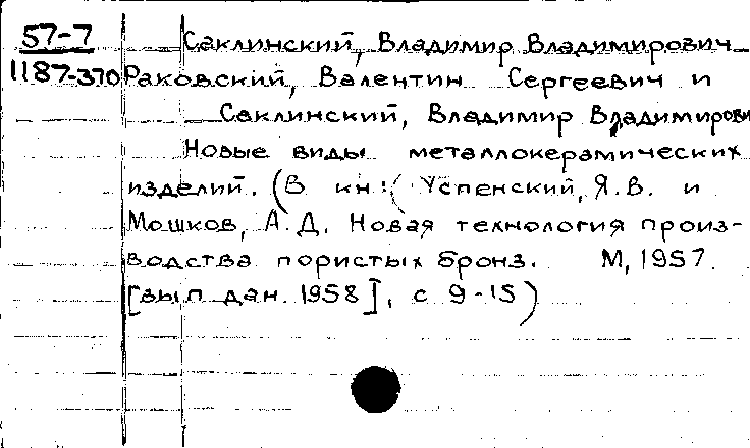 57-7 Саклинский, Владимир Владимирович
1187-370 Раковский, Валентин Сергеевич и
Саклинский, Владимир Владимирови
Новые виды металлокерамических
изделий. (В кн: (Успенский, Я.В. и
Мошков, А.Д. Новая технология произ-
водства пористых бронз. М, 1957.
[вып дан. 1958], с 9-15)